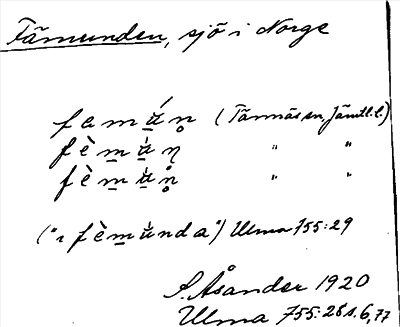 Fämunden, sjö i Norge
femán̥ (Tännäs sn, Jämtl. l.)
fèmàn̥ " "
fèmǜn̥ " "
("ı fèmùnda") Ulma 755:29
S. Åsander 1920
Ulma 755:28 s. 6, 77